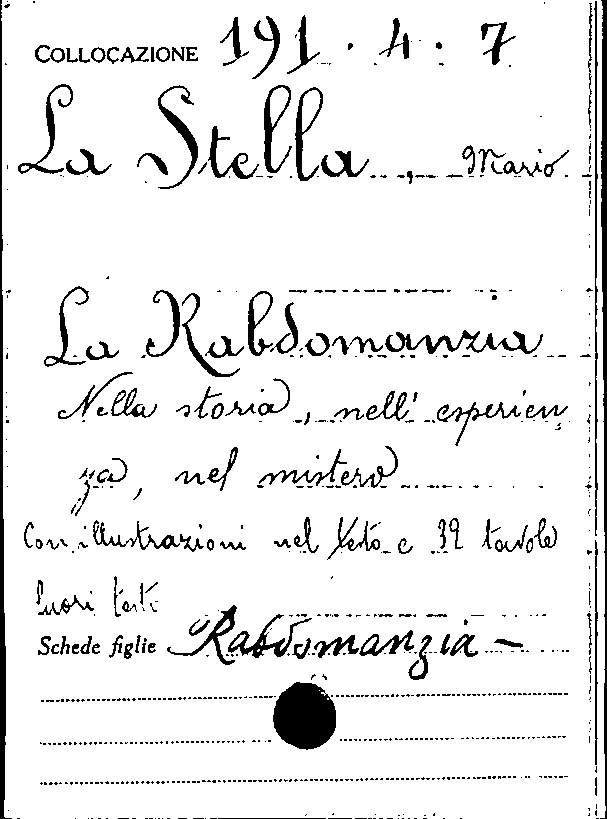 COLLOCAZIONE 191 . 4 . 7
La Stella, Mario
La Rabdomanzia
Nella storia, nell' esperien,
za, nel mistero
Con illustrazioni nel testo e 32 tavole
fuori testo
Schede figlie Rabdomanzia –